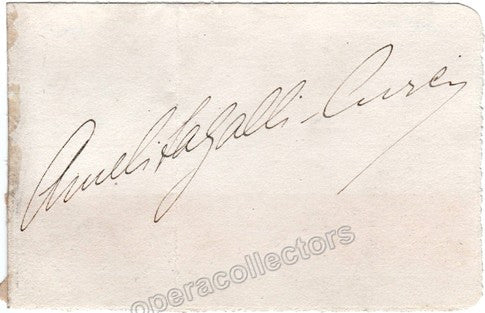 Amelita Galli-Curci
operacollectors